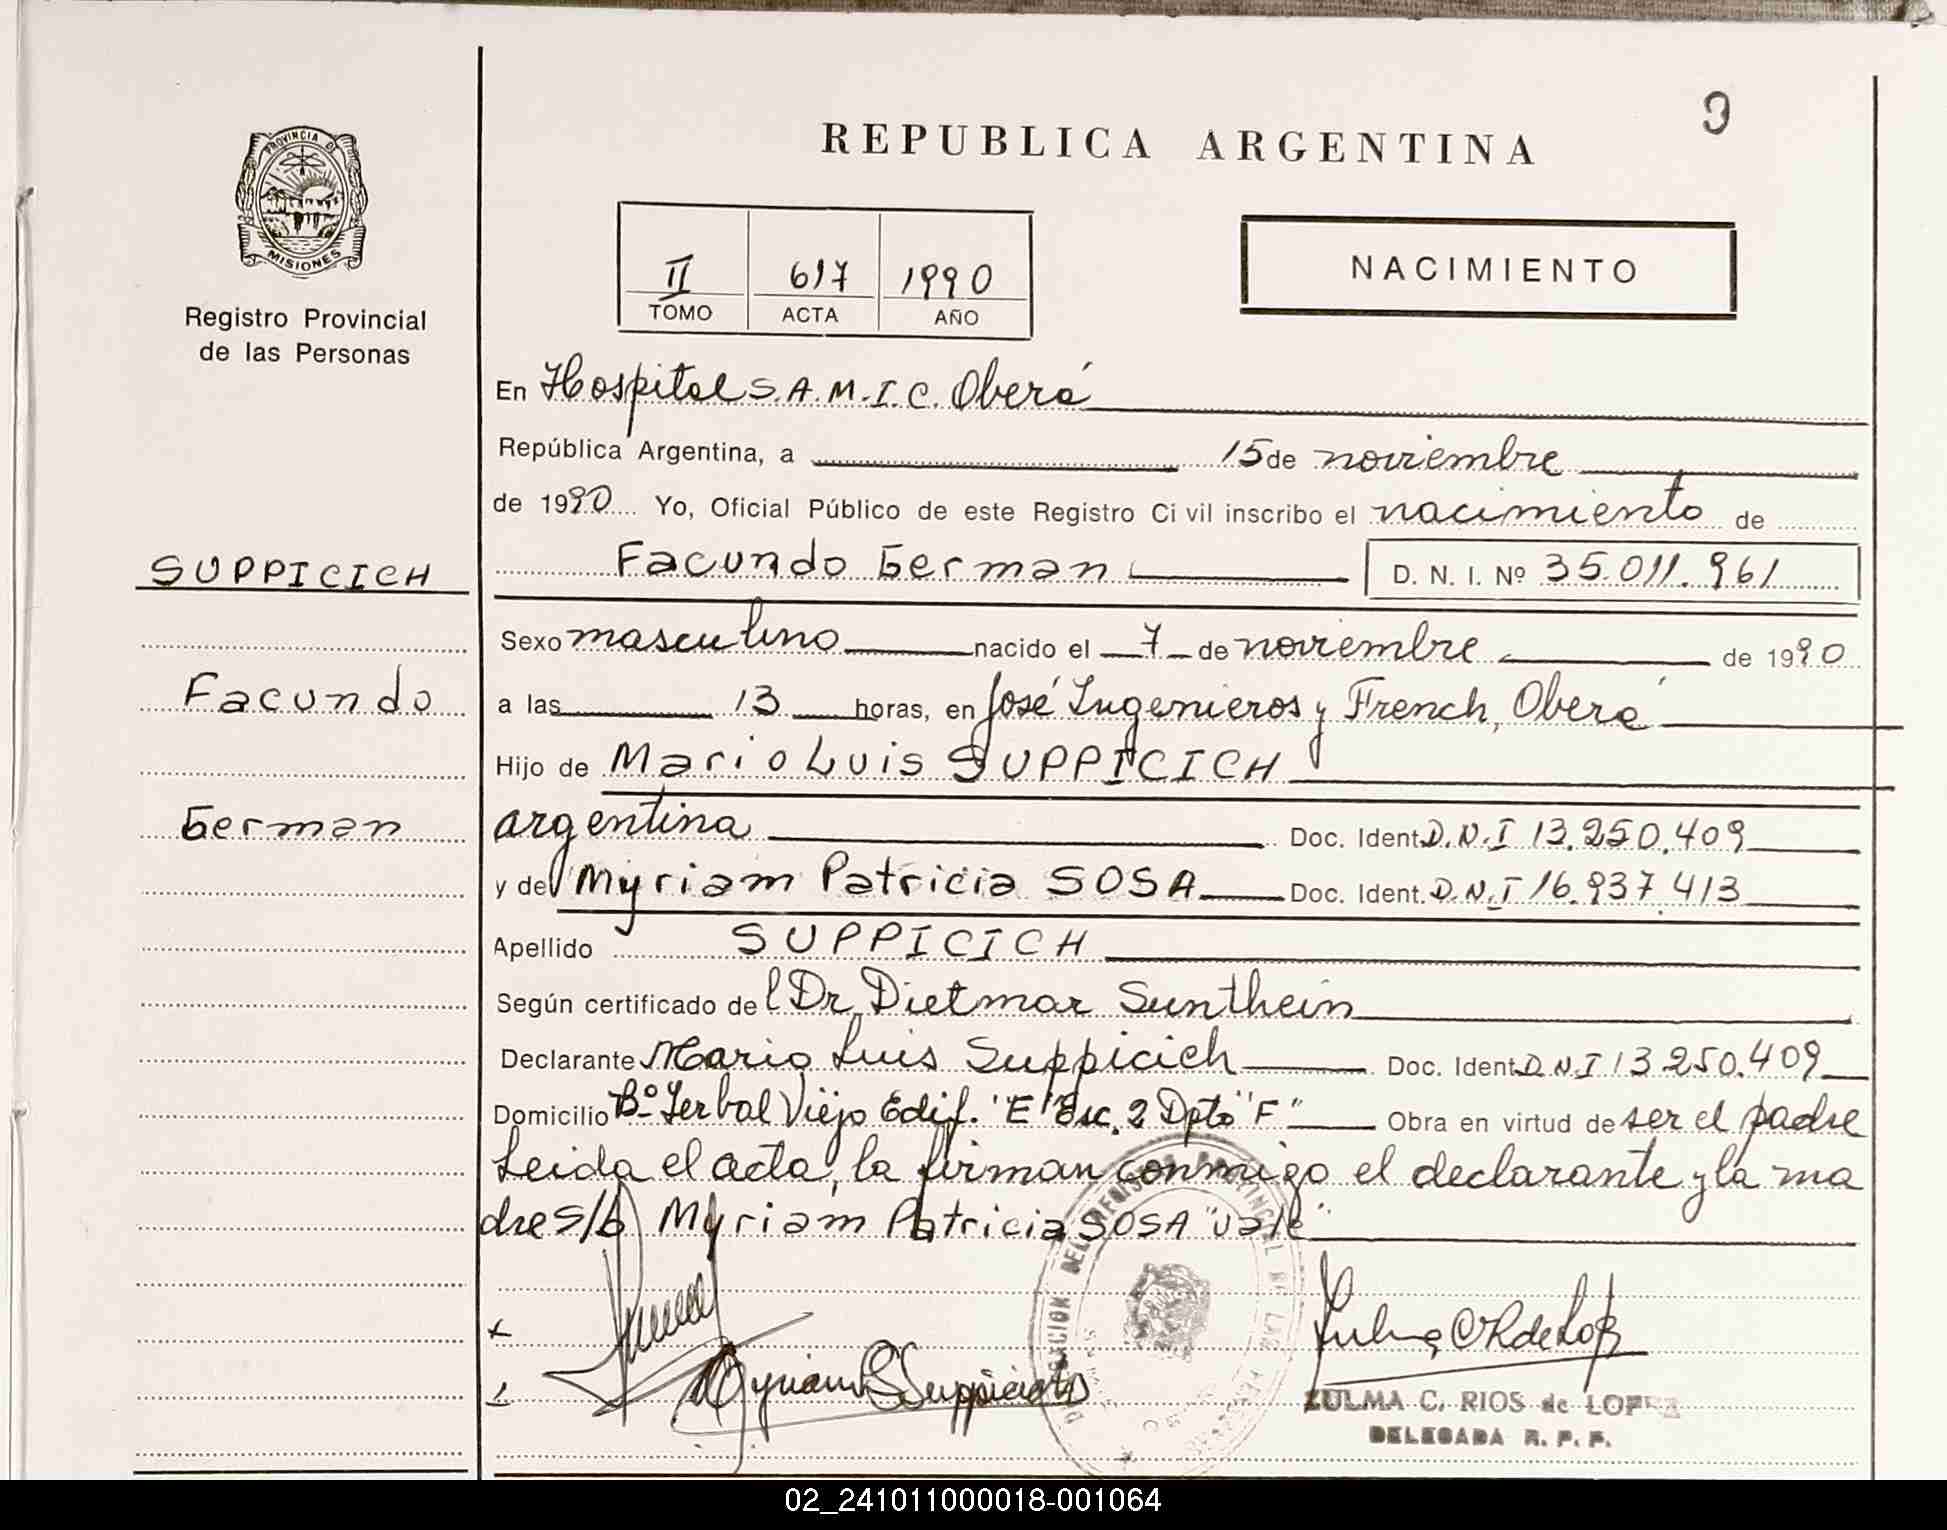 9
REPUBLICA ARGENTINA
PROVINCIA DE
MISIONES
Registro Provincial
de las Personas
II 617 1990
TOMO ACTA AÑO
NACIMIENTO
En Hospital S.A.M.I.C. Oberá
República Argentina, a 15 de noviembre
de 1990 Yo, Oficial Público de este Registro Civil inscribo el nacimiento de
SUPPICICH
Facundo German D. N. I. Nº 35.011.961
Sexo masculino nacido el 7 de noviembre de 1990
Facundo
a las 13 horas, en José Ingenieros y French, Oberá
Hijo de Mario Luis SUPPICICH
German
argentina Doc. Ident. D.N.I 13.250.409
y de Myriam Patricia SOSA Doc. Ident. D.N.I 16.937.413
Apellido SUPPICICH
Según certificado del Dr Dietmar Sunthein
Declarante Mario Luis Suppicich Doc. Ident. D.N.I 13.250.409
Domicilio Bº Yerbal Viejo Edif. "E" Esc. 2 Dpto "F" Obra en virtud de ser el padre
Leida el acta, la firman conmigo el declarante y la ma
dre s/b Myriam Patricia SOSA "vale"
Myriam Suppicich
ZULMA C. RIOS de LOPEZ
DELEGADA R. P. P.
02_241011000018-001064